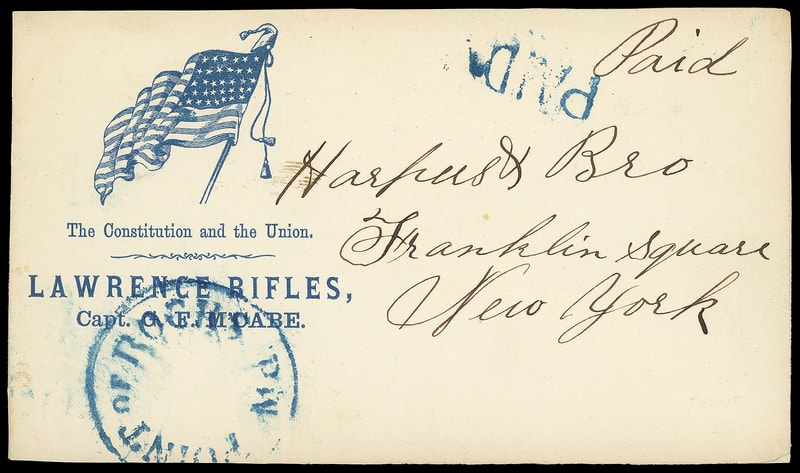 The Constitution and the Union.
LAWRENCE RIFLES,
Capt. G. F. M'CABE.
POINT OF ROCKS MD
PAID
Paid
Harpers & Bro
Franklin Square
New York